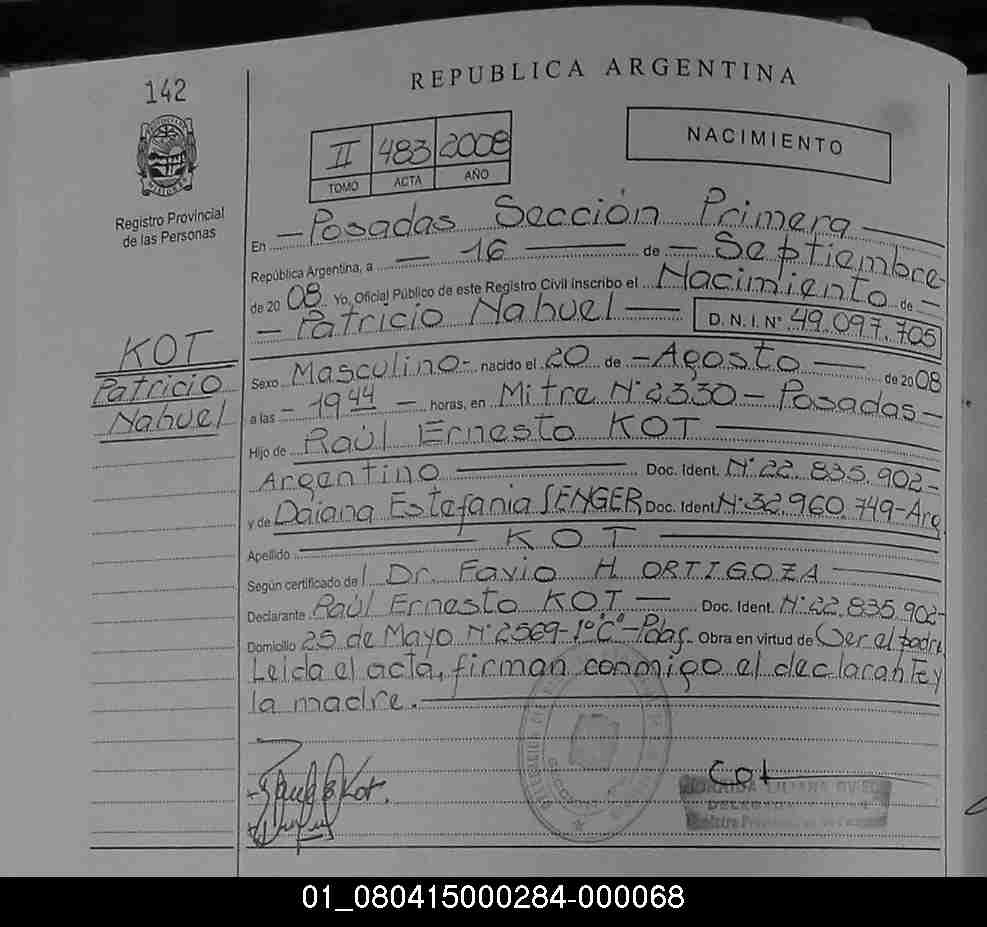 142
REPUBLICA ARGENTINA
NACIMIENTO
II 483 2008
TOMO ACTA AÑO
Registro Provincial
de las Personas
En - Posadas Sección Primera
República Argentina, a - 16 - de - Septiembre-
de 2008 Yo, Oficial Público de este Registro Civil inscribo el Nacimiento de -
- Patricio Nahuel - D.N.I. Nº 49.097.705
KOT
Patricio
Nahuel
Sexo Masculino- nacido el 20 de - Agosto - de 2008
a las - 19 44 - horas, en Mitre Nº 2330 - Posadas -
Hijo de Raúl Ernesto KOT
Argentino Doc. Ident. Nº 22.835.902-
y de Daiana Estefania SENGER Doc. Ident. Nº 32.960.749-Arg
Apellido KOT
Según certificado del Dr. Favio H. ORTIGOZA
Declarante Raúl Ernesto KOT. - Doc. Ident. Nº 22.835.902-
Domicilio 25 de Mayo Nº 2569-1º"C"-Pdas. Obra en virtud de Ser el padre
Leída el acta, firman conmigo el declarante y
la madre.
Kot.
LILIANA
Registro Provincial de las Personas
01_080415000284-000068